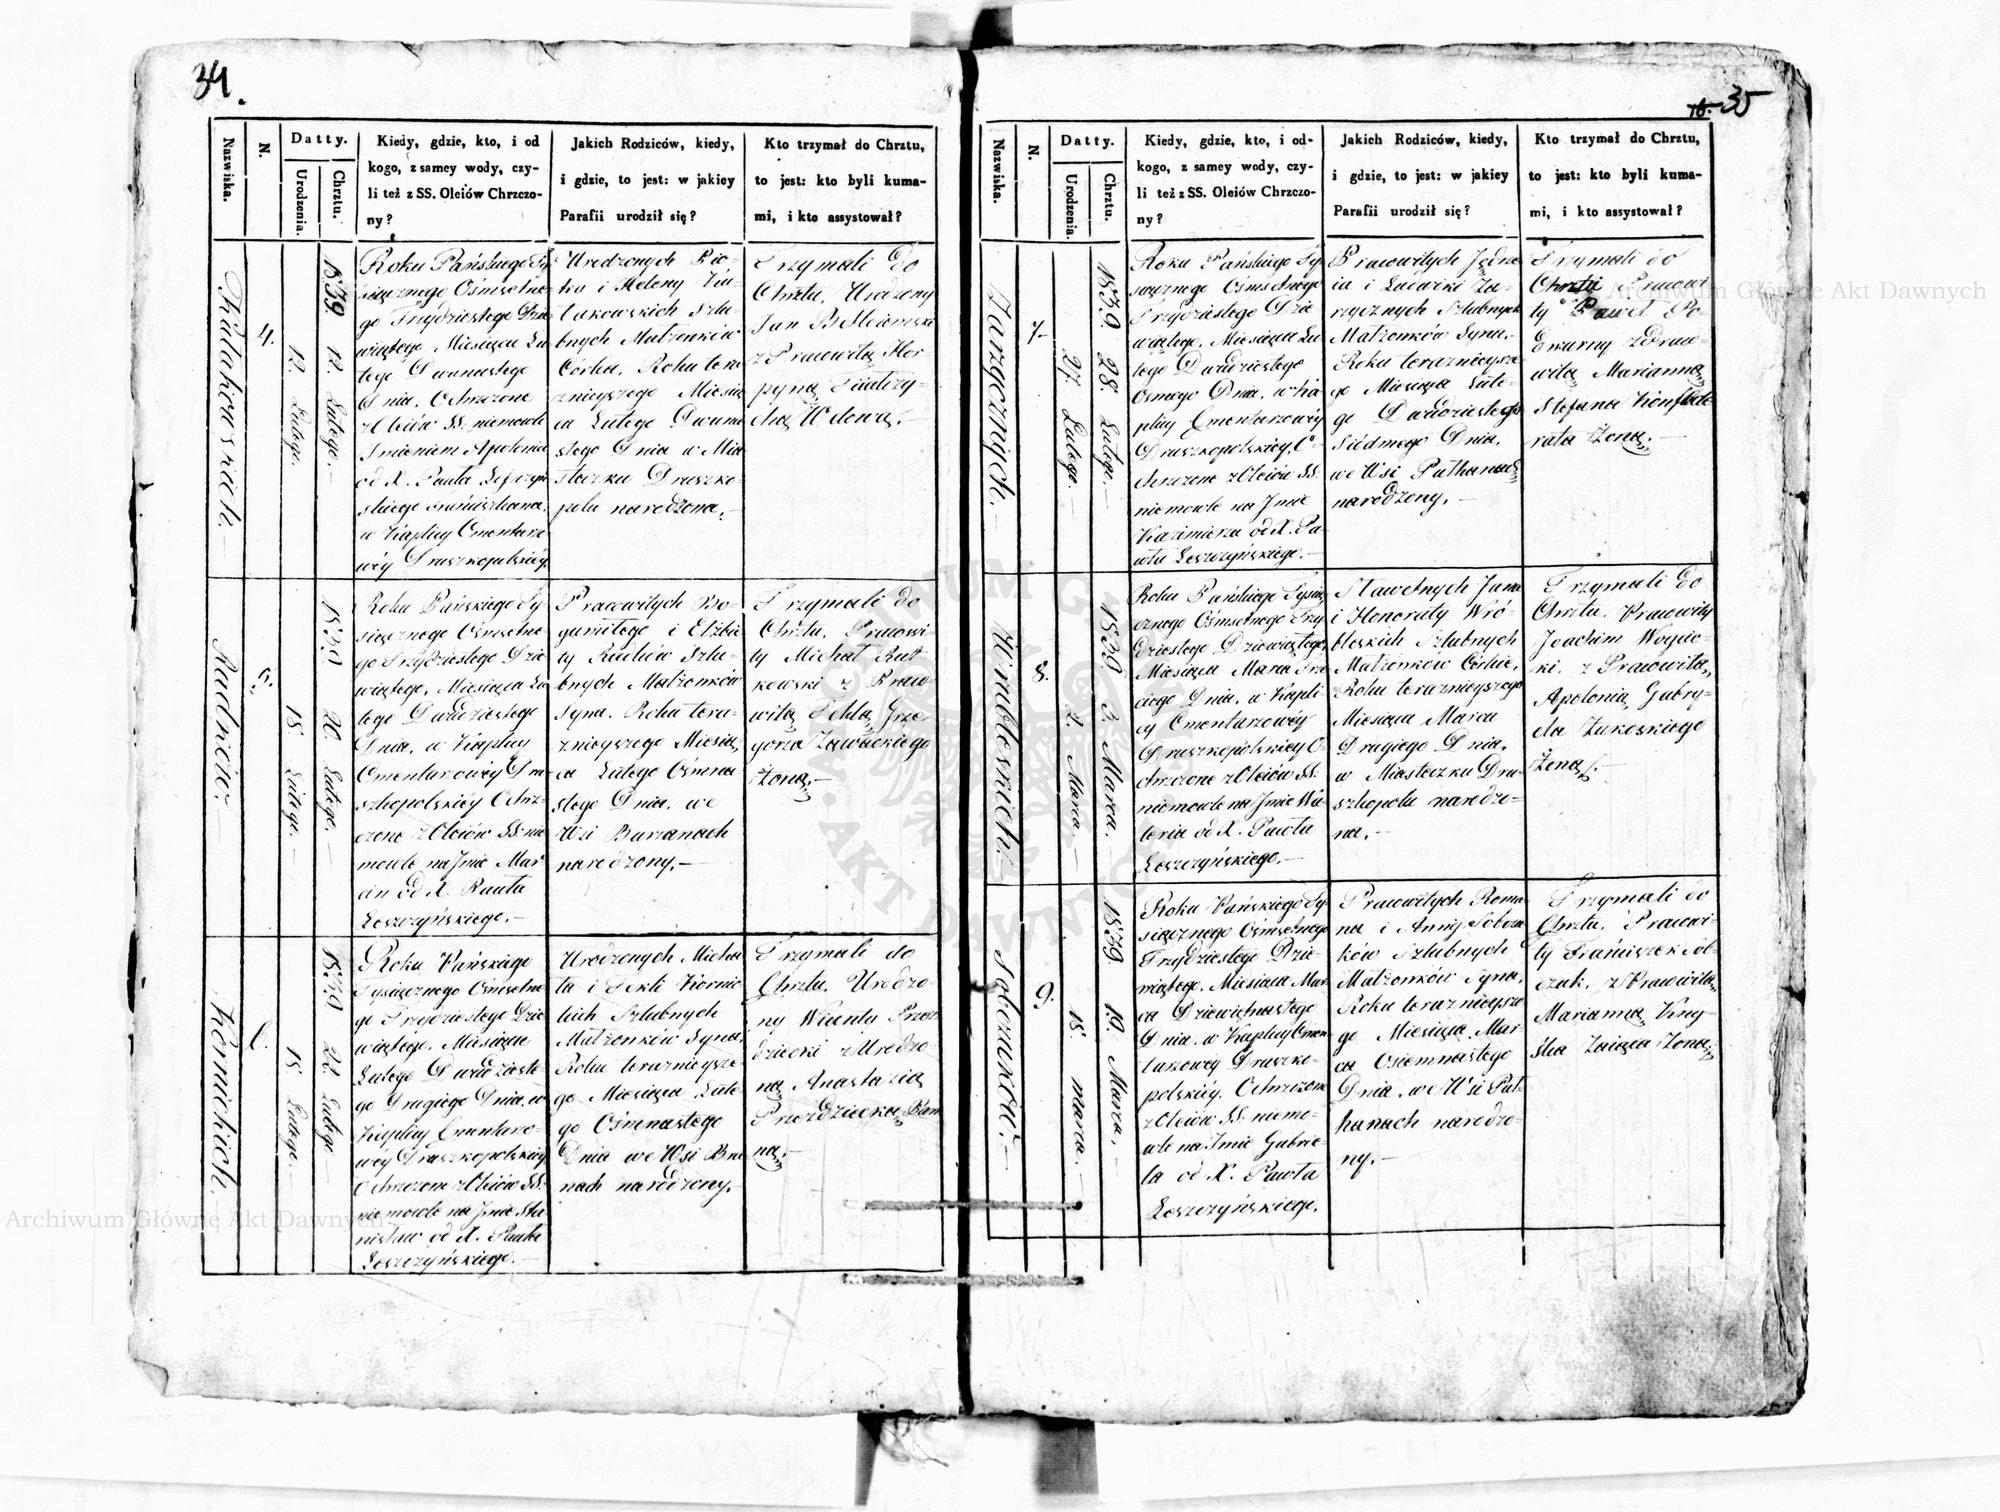 34.
Nazwiska.
N.
Datty.
Urodzenia.
Chrztu.
Kiedy, gdzie, kto, i od
kogo, z samey wody, czy-
li też z SS. Oleiów Chrzczo-
ny?
Jakich Rodziców, kiedy,
i gdzie, to jest: w jakiey
Parafii urodził się?
Kto trzymał do Chrztu,
to jest: kto byli kuma-
mi, i kto assystował?
4.
12. Lutego.
1839. 12. Lutego.
Roku Pańskiego Ty-
siącznego Ośmsetne-
go Trzydziestego Dzie
wiątego, Miesiąca Lu
tego Dwunastego
Dnia, Ochrzczone
z Oleiów SS. niemowle
Imieniem Apolonia
od X. Pawła
w Kaplicy Cmentarzo
wéy Druszkopolskiéy.
Urodzonych Pio-
tra i Heleny
Szlu-
bnych Małżonków
Córka, Roku tera
znieyszego Miesią
ca Lutego Dwuna
stego Dnia w Mia
steczku Druszko-
polu narodzona.
Trzymali do
Chrztu, Urodzony
Jan
z Pracowitą Hor-
pyną
Wdową.
Radniców.
5.
18. Lutego.
1839 20. Lutego.
Roku Pańskiego Ty-
siącznego Ośmsetne
go Trzydziestego Dzie
wiątego, Miesiąca Lu
tego Dwudziestego
Dnia, w Kaplicy
Cmentarzowéy Dru
szkopolskiéy Ochrz-
czone z Oleiów SS. nie
mowle na Jmie Mar
cin od X. Pawła
Leszczyńskiego.
Pracowitych Bo-
gumiłego i Elżbie
ty Szlu-
bnych Małżonków
Syna. Roku tera-
znieyszego Miesią
ca Lutego Ośmna
stego Dnia, we
Wsi Burzanach
narodzony.
Trzymali do
Chrztu, Pracowi
ty Michał Rut
kowski z Praco
witą Teklą Grze-
gorza Zawadzkiego
Żoną.
Kornickich.
6.
18. Lutego.
1839 22. Lutego
Roku Pańskiego
Tysiącznego Ośmsetne
go Trzydziestego Dzie
wiątego, Miesiąca
Lutego Dwudzieste-
go Drugiego Dnia, w
Kaplicy Cmentarzo-
wéy Druszkopolskiéy
Ochrzczone z Oleiów SS.
niemowle na Jmie Sta
nisław od X. Pawła
Leszczyńskiego.
Urodzonych Micha
ła i Tekli Kornic
kich Szlubnych
Małżonków Syna,
Roku teraznieysze
go Miesiąca Lute
go Ośmnastego
Dnia we Wsi
narodzony.
Trzymali do
Chrztu, Urodzo-
ny Wincenty Przez
dziecki z Urodzo-
ną Anastazią
Przezdziecką Pan
ną.
35
Nazwiska.
N.
Datty.
Urodzenia.
Chrztu.
Kiedy, gdzie, kto, i od-
kogo, z samey wody, czy-
li też z SS. Oleiów Chrzczo-
ny?
Jakich Rodziców, kiedy,
i gdzie, to jest: w jakiey
Parafii urodził się?
Kto trzymał do Chrztu,
to jest: kto byli kuma-
mi, i kto assystował?
Zarzycznych.
7.
27. Lutego.
1839. 28. Lutego.
Roku Pańskiego Ty-
siącznego Ośmsetnego
Trzydziestego Dzie
wiątego, Miesiąca Lu
tego Dwudziestego
Osmego Dnia, w Ka
plicy Cmentarzowéy
Druszkopolskiéy, O-
chrzczone z Oleiów SS.
niemowle na Jmie
Kazimierza od X. Pa-
wła Leszczyńskiego.
Pracowitych Jędrze
ia i Ludwiki Za-
rzycznych Szlubnych
Małżonków Syna,
Roku teraznieysze
go Miesiąca Lute-
go Dwudziestego
Siódmego Dnia,
we Wsi Pułhanach
narodzony.
Trzymali do
Chrztu Pracowi
ty Paweł Po-
z Praco-
witą Marianną
Stefana Konfede
rata Żoną.
Wróbleskich.
8.
2. Marca
1839. 3. Marca.
Roku Pańskiego Tysią
cznego Ośmsetnego Trzy
dziestego Dziewiątego,
Miesiąca Marca Trze
ciego Dnia, w Kapli
cy Cmentarzowéy
Druszkopolskiéy O-
chrzczone z Oleiów SS.
niemowle na Jmie Wa
leria od X. Pawła
Leszczyńskiego.
Sławetnych Jana
i Honoraty Wró-
bleskich Szlubnych
Małżonków Córka,
Roku teraznieyszego
Miesiąca Marca
Drugiego Dnia,
w Miasteczku Dru-
szkopolu narodzo-
na.
Trzymali do
Chrztu, Pracowity
Joachim Woyci-
ki, z Pracowitą
Apolonią Gabry-
ela Żukoskiego
Żoną.
Sobczuków.
9.
18. marca.
1839. 19. Marca.
Roku Pańskiego Ty-
siącznego Ośmsetnego
Trzydziestego Dzie-
wiątego, Miesiąca Mar
ca Dziewiętnastego
Dnia, w Kaplicy Cmen
tarzowéy Druszko-
polskiéy, Ochrzczone
z Oleiów SS. niemo-
wle na Jmie Gabrie-
la od X. Pawła
Leszczyńskiego.
Pracowitych Roma
na i Anny Sobczu
ków Szlubnych
Małżonków Syna,
Roku teraznieysze
go Miesiąca Mar-
ca Osiemnastego
Dnia, we Wsi Puł-
hanach narodzo-
ny.
Trzymali do
Chrztu, Pracowi-
ty Franciszek Sob-
czuk, z Pracowitą
Marianną Krzy-
Zaiąca Żoną.
Archiwum Główne Akt Dawnych
Archiwum Główne Akt Dawnych